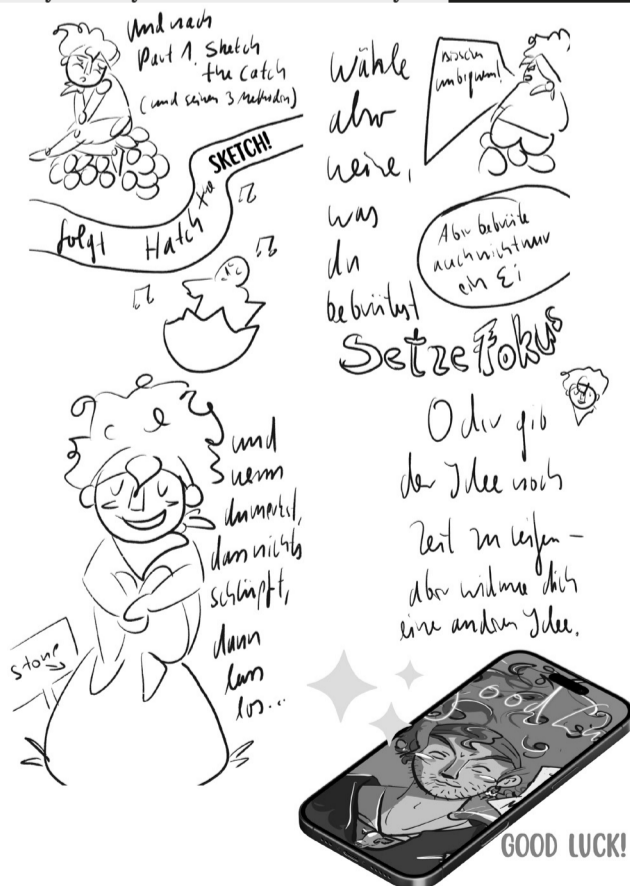 und nach
Part 1, Sketch
the Catch
(und seinen 3 Methoden)
SKETCH!
folgt Hatch the
Wähle
also
weise,
was
du
bebrütest
bisschen
unbequem!
Aber bebrüte
auch nicht nur
ein Ei
Setze Fokus
und
wenn
du merkst,
dass nichts
schlüpft,
dann
lass
los...
stone
Oder gib
der Idee noch
Zeit zu reifen –
aber widme dich
eine andren Idee.
Good
GOOD LUCK!